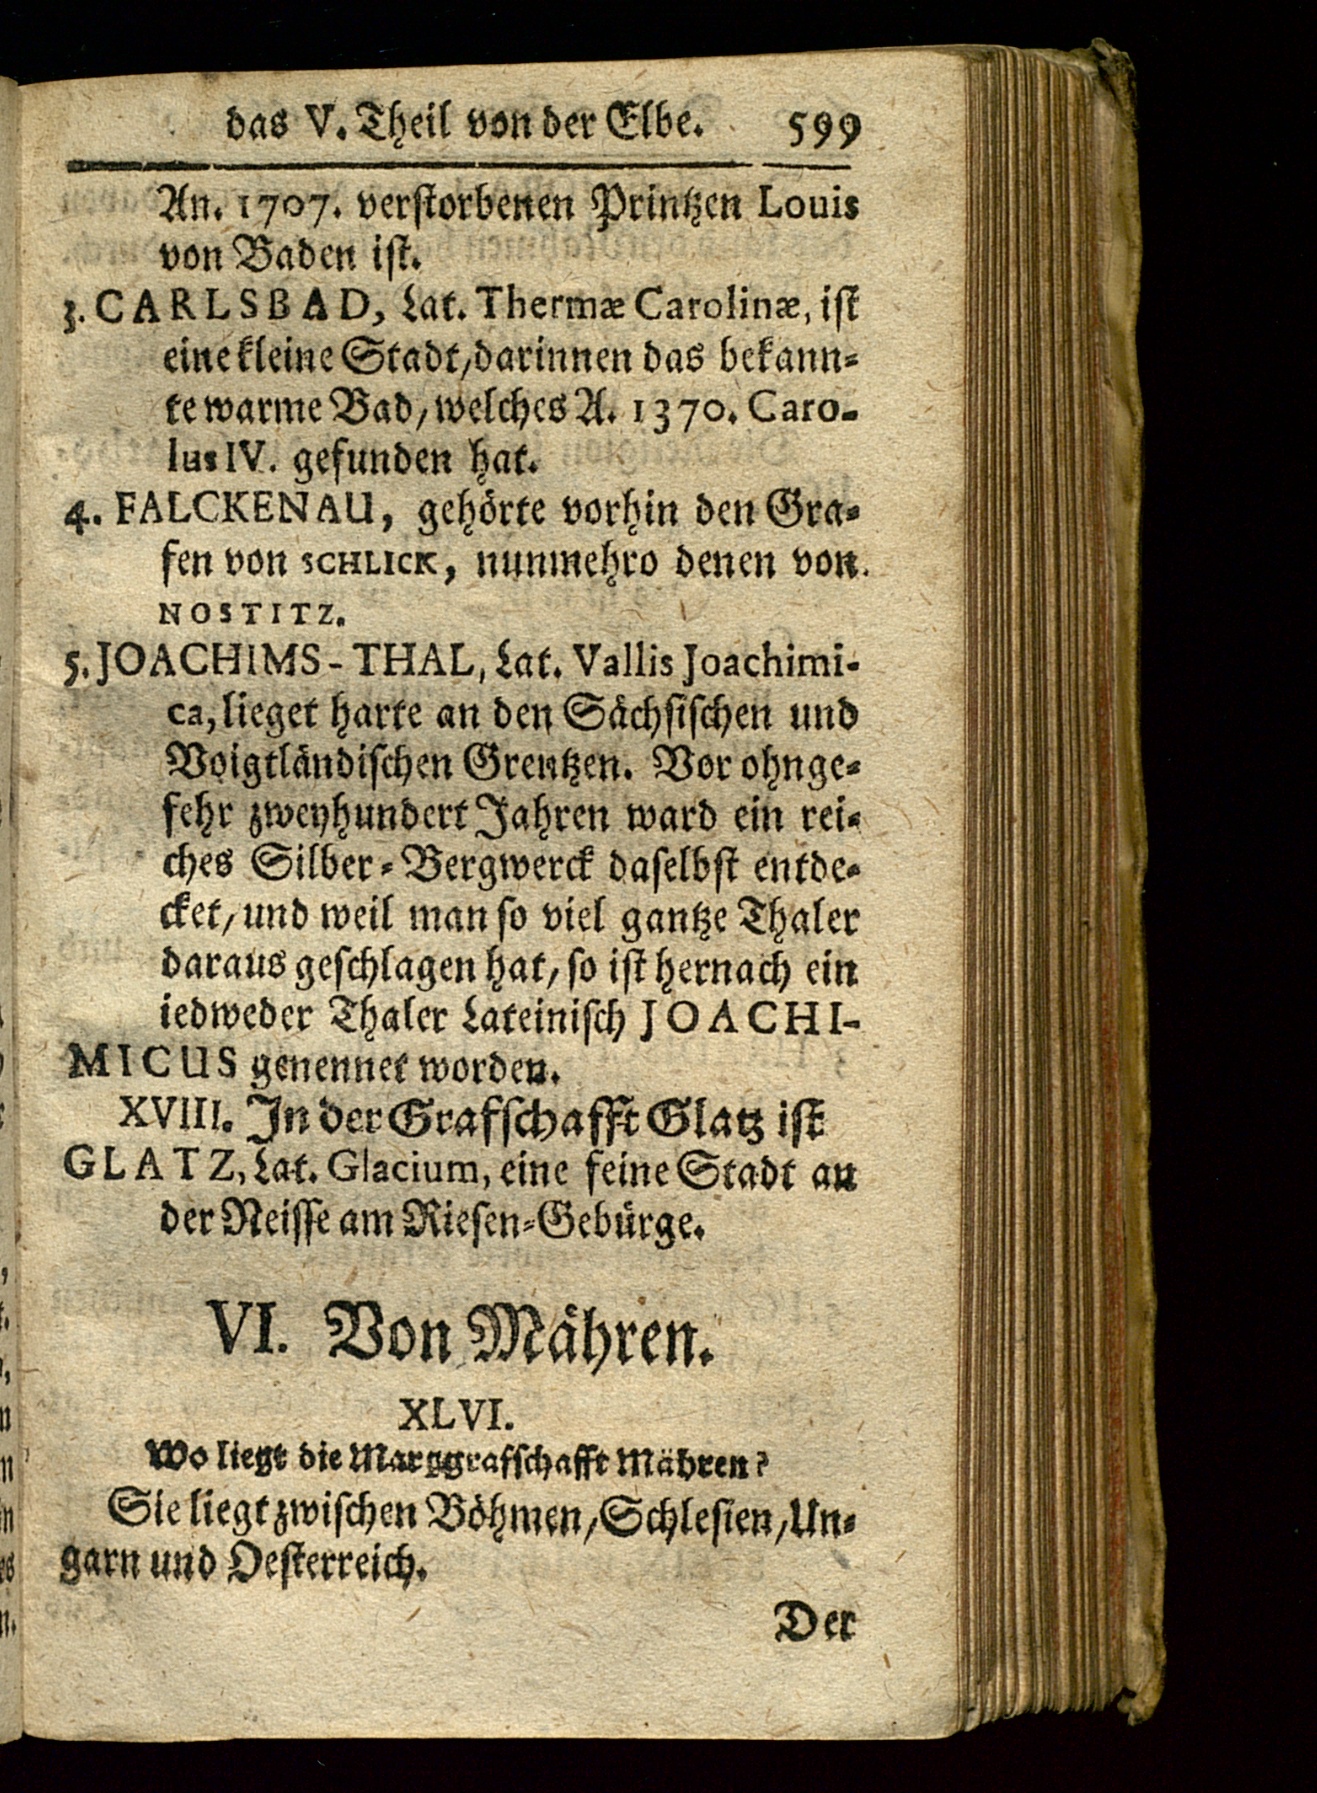 das V. Theil von der Elbe. 599
An. 1707. verstorbenen Printzen Louis
von Baden ist.
3. CARLSBAD, Lat. Thermæ Carolinæ, ist
eine kleine Stadt/darinnen das bekann-
te warme Bad/welches A. 1370. Caro-
lus IV. gefunden hat.
4. FALCKENAU, gehörte vorhin den Gra-
fen von SCHLICK, nunmehro denen von
NOSTITZ.
5. JOACHIMS-THAL, Lat. Vallis Joachimi-
ca, lieget harte an den Sächsischen und
Voigtländischen Grentzen. Vor ohnge-
fehr zweyhundert Jahren ward ein rei-
ches Silber-Bergwerck daselbst entde-
cket/und weil man so viel gantze Thaler
daraus geschlagen hat/so ist hernach ein
iedweder Thaler Lateinisch JOACHI-
MICUS genennet worden.
XVIII. In der Grafschafft Glatz ist
GLATZ, Lat. Glacium, eine feine Stadt an
der Neisse am Riesen-Gebürge.
VI. Von Mähren.
XLVI.
Wo liegt die Marggrafschafft Mähren?
Sie liegt zwischen Böhmen/Schlesien/Un-
garn und Oesterreich.
Der